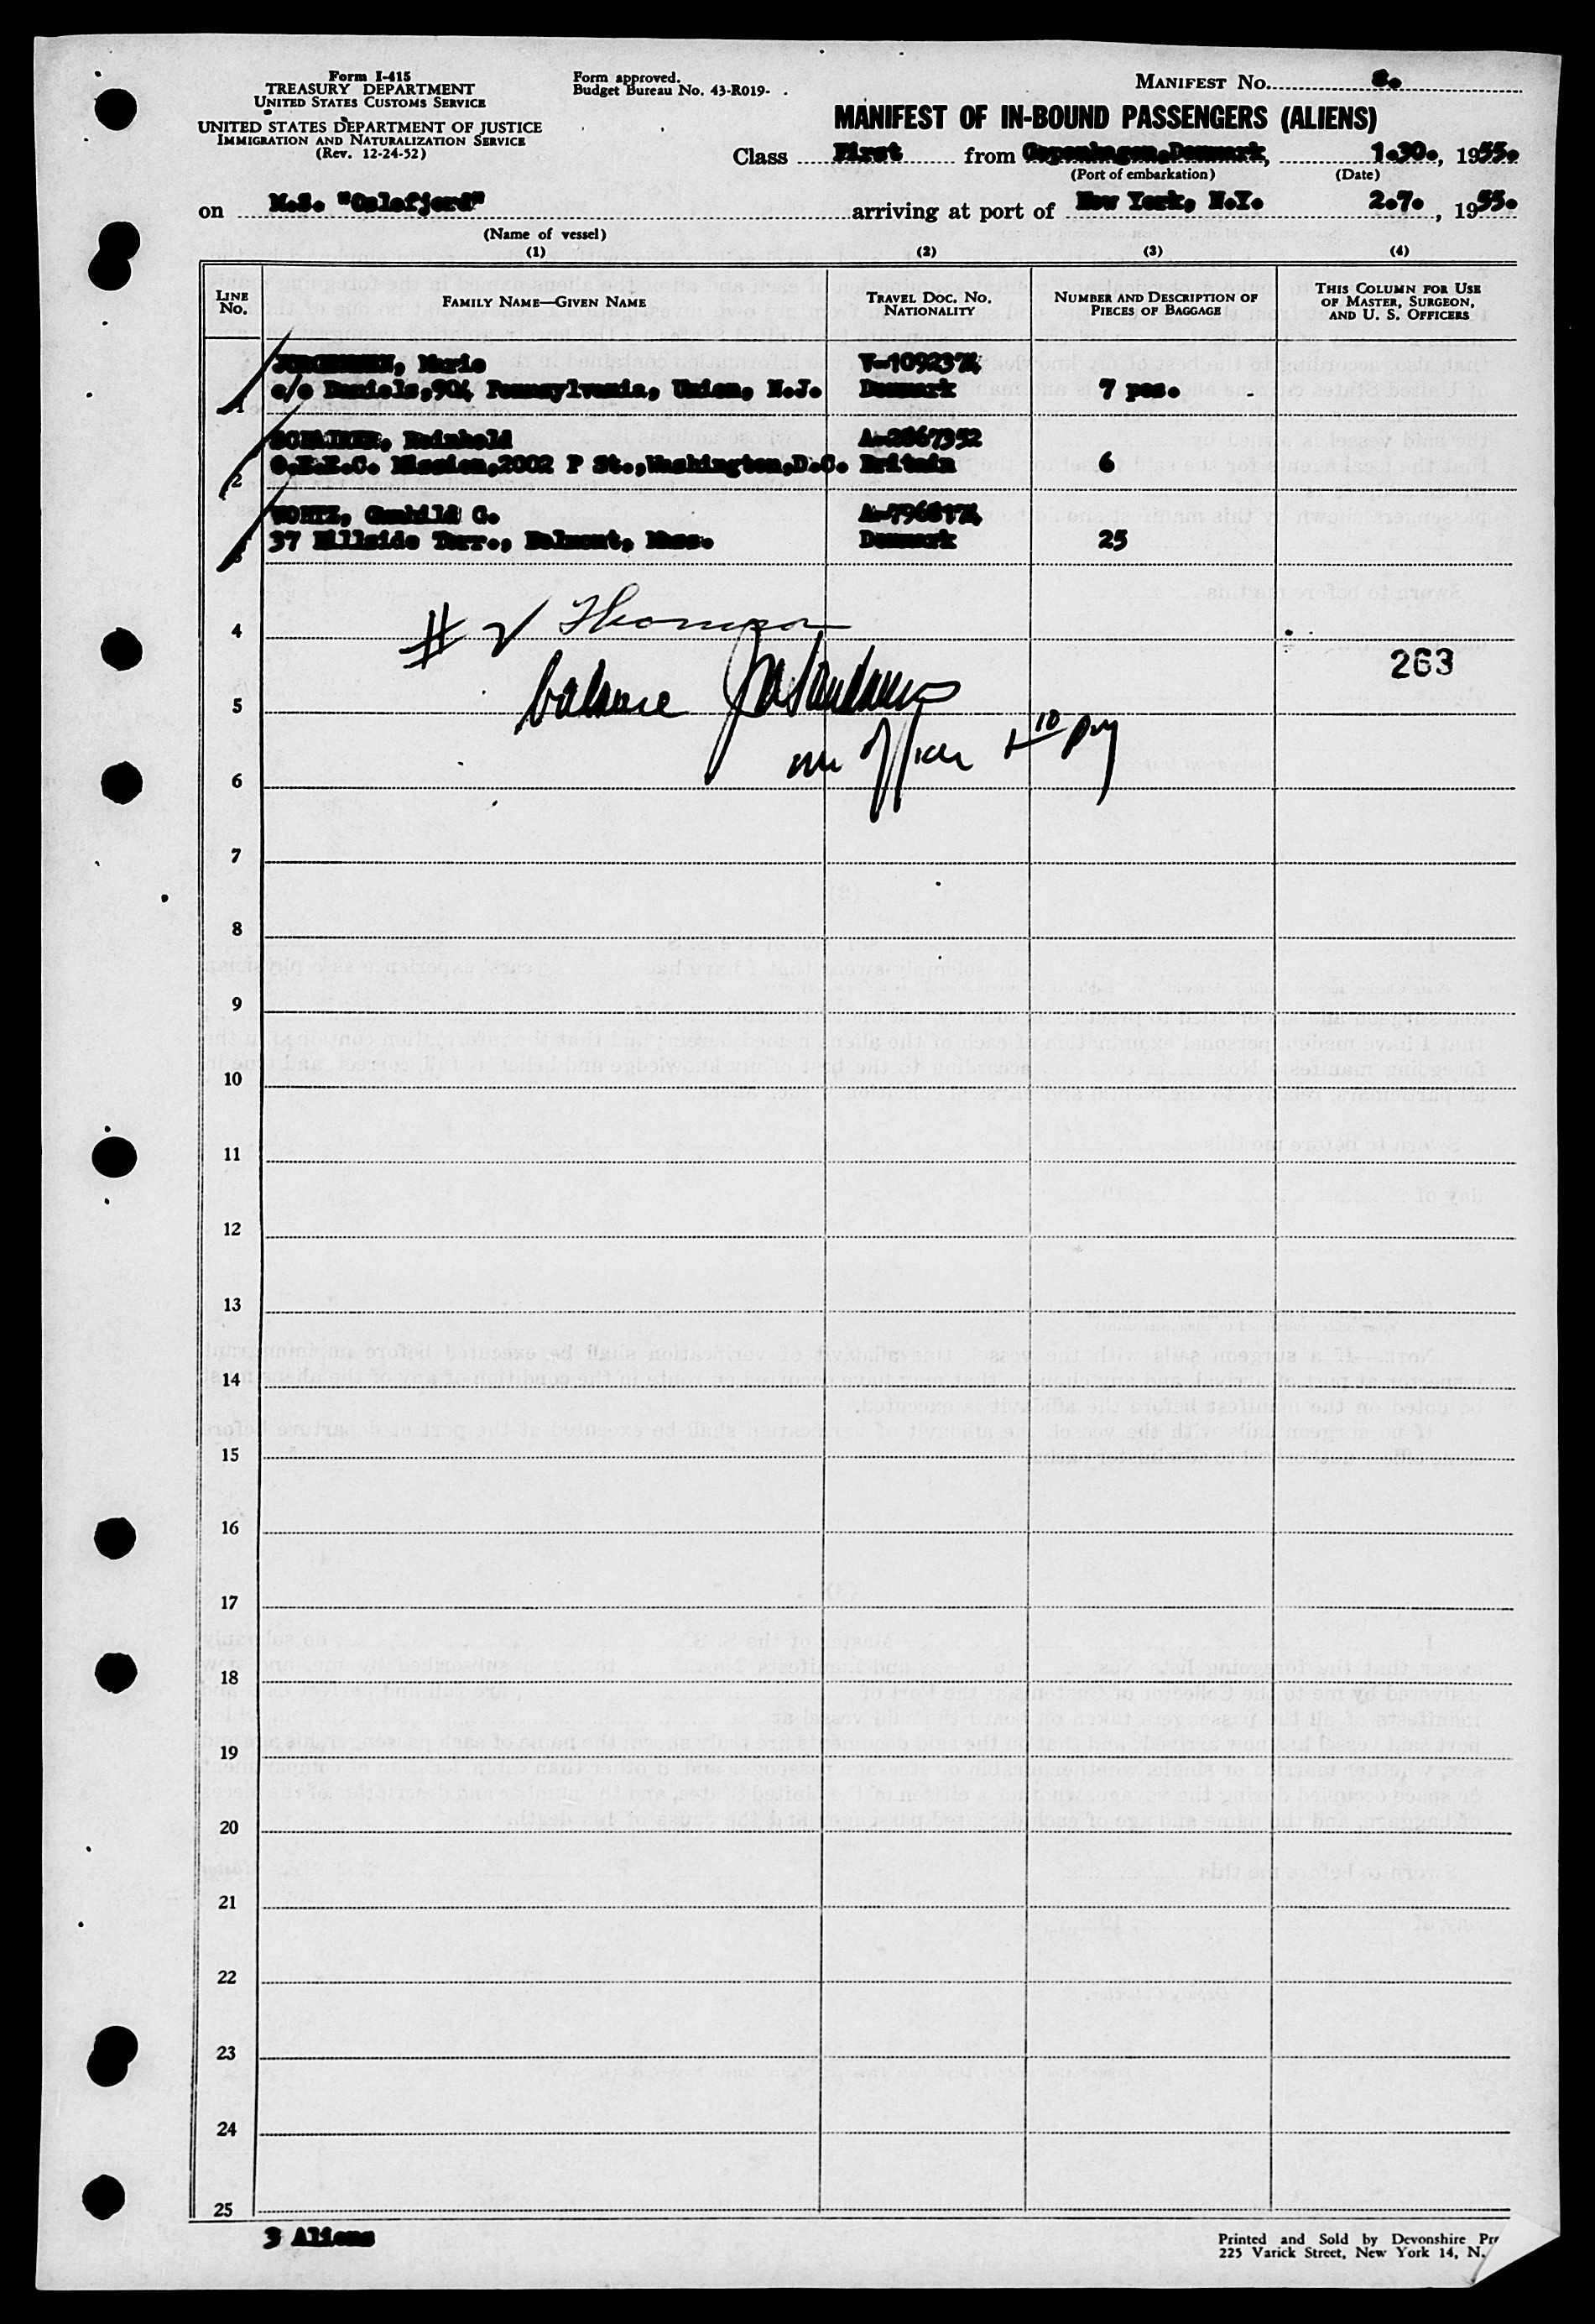 Form I-415
TREASURY DEPARTMENT
UNITED STATES CUSTOMS SERVICE
UNITED STATES DEPARTMENT OF JUSTICE
IMMIGRATION AND NATURALIZATION SERVICE
(Rev. 12-24-52)
Form approved.
Budget Bureau No. 43-R019- .
MANIFEST No. 8.
MANIFEST OF IN-BOUND PASSENGERS (ALIENS)
Class First from Copenhagen,Denmark, 1.30., 1955.
(Port of embarkation) (Date)
on M.S. "Oslofjord" arriving at port of New York, N.Y. 2.7., 1955.
(Name of vessel)
(1) (2) (3) (4)
LINE NO. FAMILY NAME—GIVEN NAME TRAVEL DOC. NO. NATIONALITY NUMBER AND DESCRIPTION OF PIECES OF BAGGAGE THIS COLUMN FOR USE OF MASTER, SURGEON, AND U. S. OFFICERS
Marie V-1092374
1 c/o Daniels,904 Pennsylvania, Union, N.J. Denmark 7 pcs.
Reinhold A-2867352
2 O.E.E.C. Mission,2002 P St.,Washington,D.C. Britain 6
Gunhild G.
3 37 Hillside Terr., Belmont, Mass. Denmark 25
# 2 Thompson
4
263
balance
5
office
6
7
8
9
10
11
12
13
14
15
16
17
18
19
20
21
22
23
24
25
3 Aliens
Printed and Sold by Devonshire
225 Varick Street, New York 14, N.